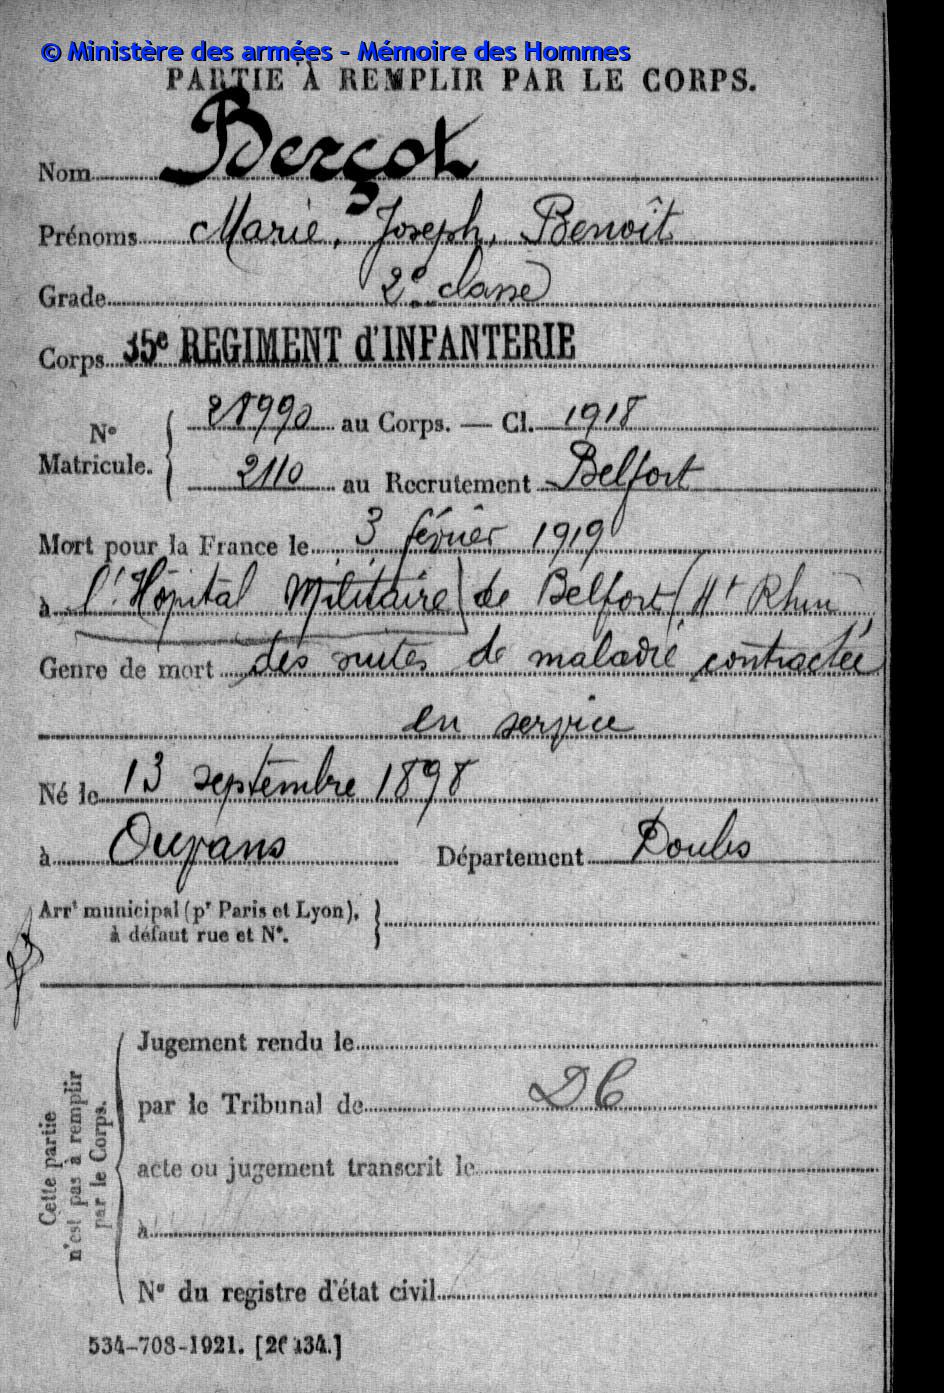 © Ministère des armées - Mémoire des Hommes
PARTIE À REMPLIR PAR LE CORPS.
Nom Berçot
Prénoms Marie, Joseph, Benoît
Grade 2e classe
Corps 35e REGIMENT d'INFANTERIE
N° Matricule. 21990 au Corps. — Cl. 1918
2110 au Recrutement Belfort
Mort pour la France le 3 février 1919
à l'Hôpital Militaire de Belfort (Ht Rhin
Genre de mort des suites de maladie contractée
en service
Né le 13 septembre 1898
à Ouvans Département Doubs
Arrt municipal (pr Paris et Lyon),
à défaut rue et N°.
Cette partie
n'est pas à remplir
par le Corps.
Jugement rendu le
par le Tribunal de DC
acte ou jugement transcrit le
à
N° du registre d'état civil
534-708-1921. [26434.]